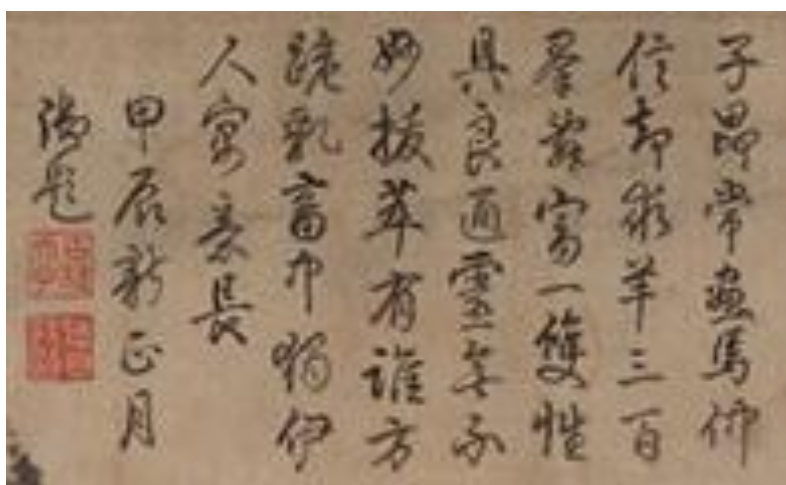 子昂常畫馬仲
信却求羊三百
羣辭寫一雙性
具良通靈無不
妙拔萃有誰方
跪乳畜中獨伊
人寓意長
甲辰新正月
御題